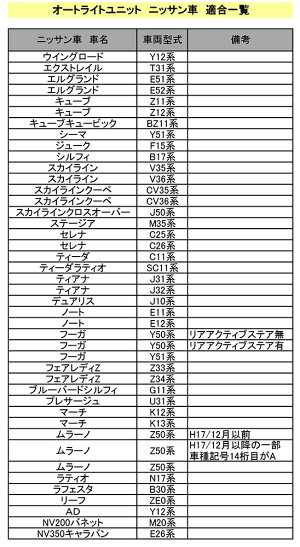 オートライトユニット ニッサン車 適合一覧
ニッサン車 車名 車両型式 備考
ウイングロード Y12系
エクストレイル T31系
エルグランド E51系
エルグランド E52系
キューブ Z11系
キューブ Z12系
キューブキュービック BZ11系
シーマ Y51系
ジューク F15系
シルフィ B17系
スカイライン V35系
スカイライン V36系
スカイラインクーペ CV35系
スカイラインクーペ CV36系
スカイラインクロスオーバー J50系
ステージア M35系
セレナ C25系
セレナ C26系
ティーダ C11系
ティーダラティオ SC11系
ティアナ J31系
ティアナ J32系
デュアリス J10系
ノート E11系
ノート E12系
フーガ Y50系 リアアクティブステア無
フーガ Y50系 リアアクティブステア有
フーガ Y51系
フェアレディZ Z33系
フェアレディZ Z34系
ブルーバードシルフィ G11系
プレサージュ U31系
マーチ K12系
マーチ K13系
ムラーノ Z50系 H17/12月以前
ムラーノ Z50系 H17/12月以降の一部
車種記号14桁目がA
ムラーノ Z50系
ラティオ N17系
ラフェスタ B30系
リーフ ZE0系
AD Y12系
NV200バネット M20系
NV350キャラバン E26系